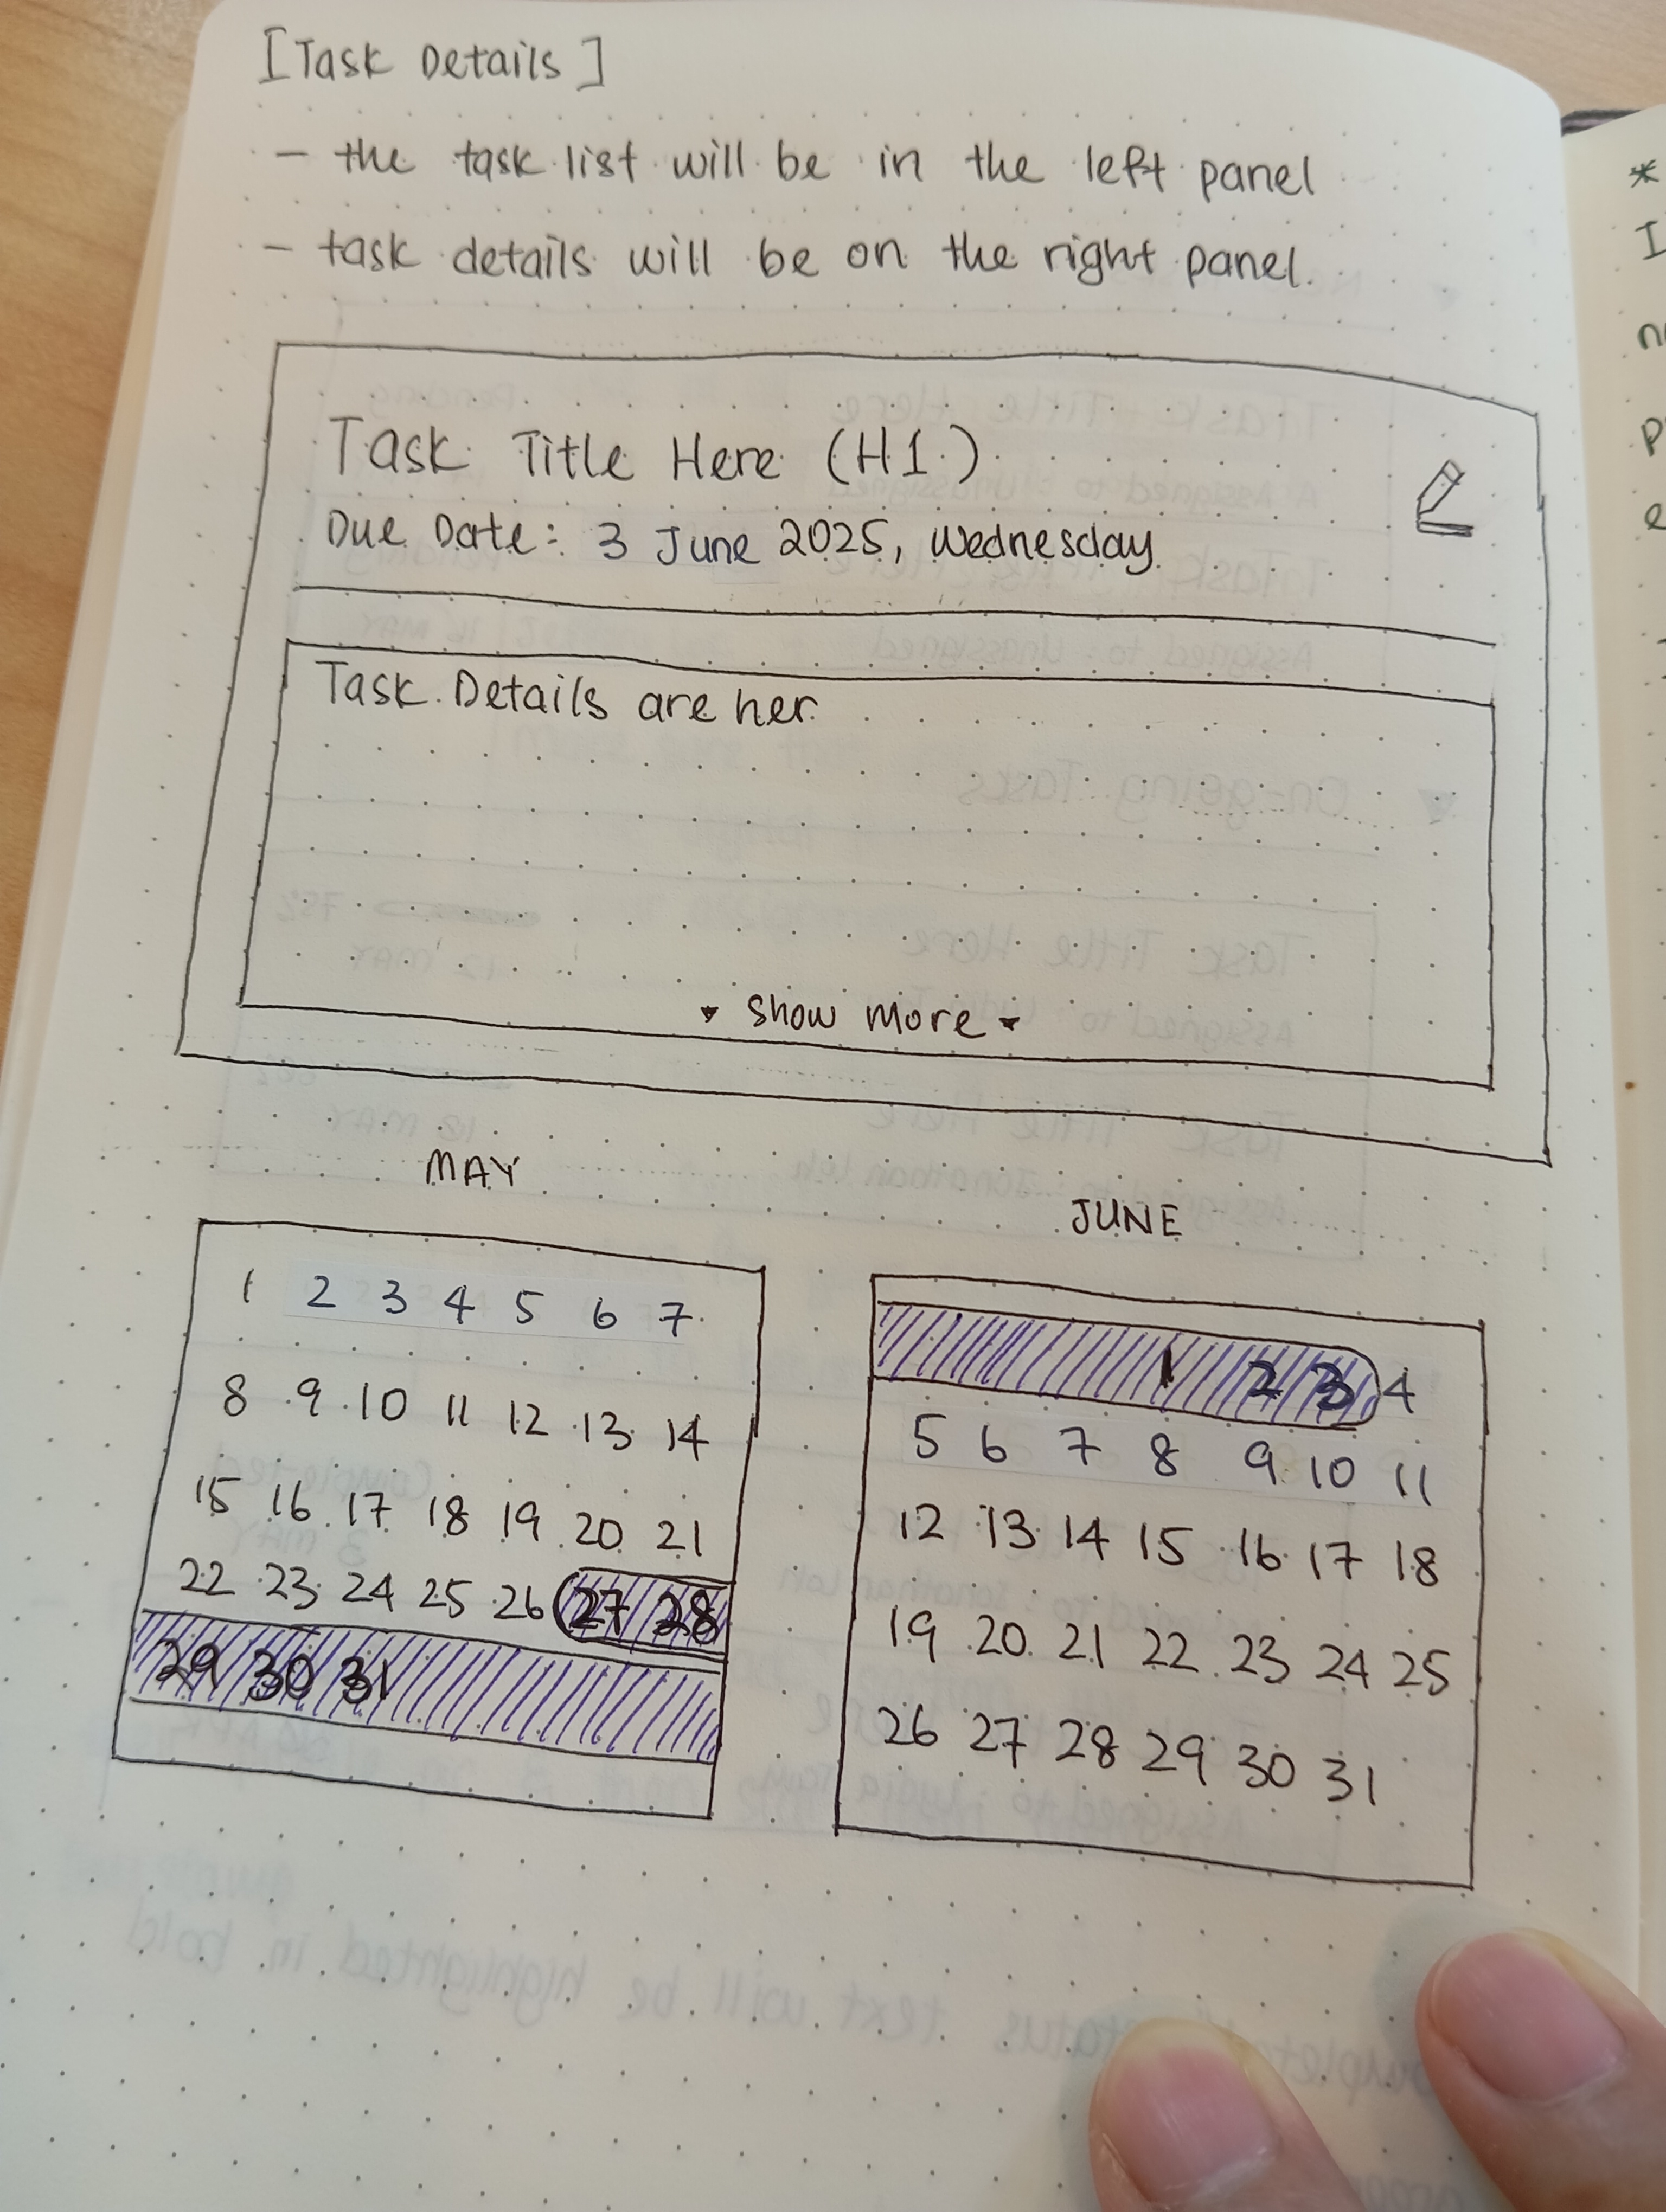 [Task Details]
- the task list will be in the left panel
- task details will be on the right panel.
Task Title Here (H1)
Due Date: 3 June 2025, Wednesday
Task Details are her
Show more
MAY
1 2 3 4 5 6 7
8 9 10 11 12 13 14
15 16 17 18 19 20 21
22 23 24 25 26 27 28
29 30 31
JUNE
1 2 3 4
5 6 7 8 9 10 11
12 13 14 15 16 17 18
19 20 21 22 23 24 25
26 27 28 29 30 31